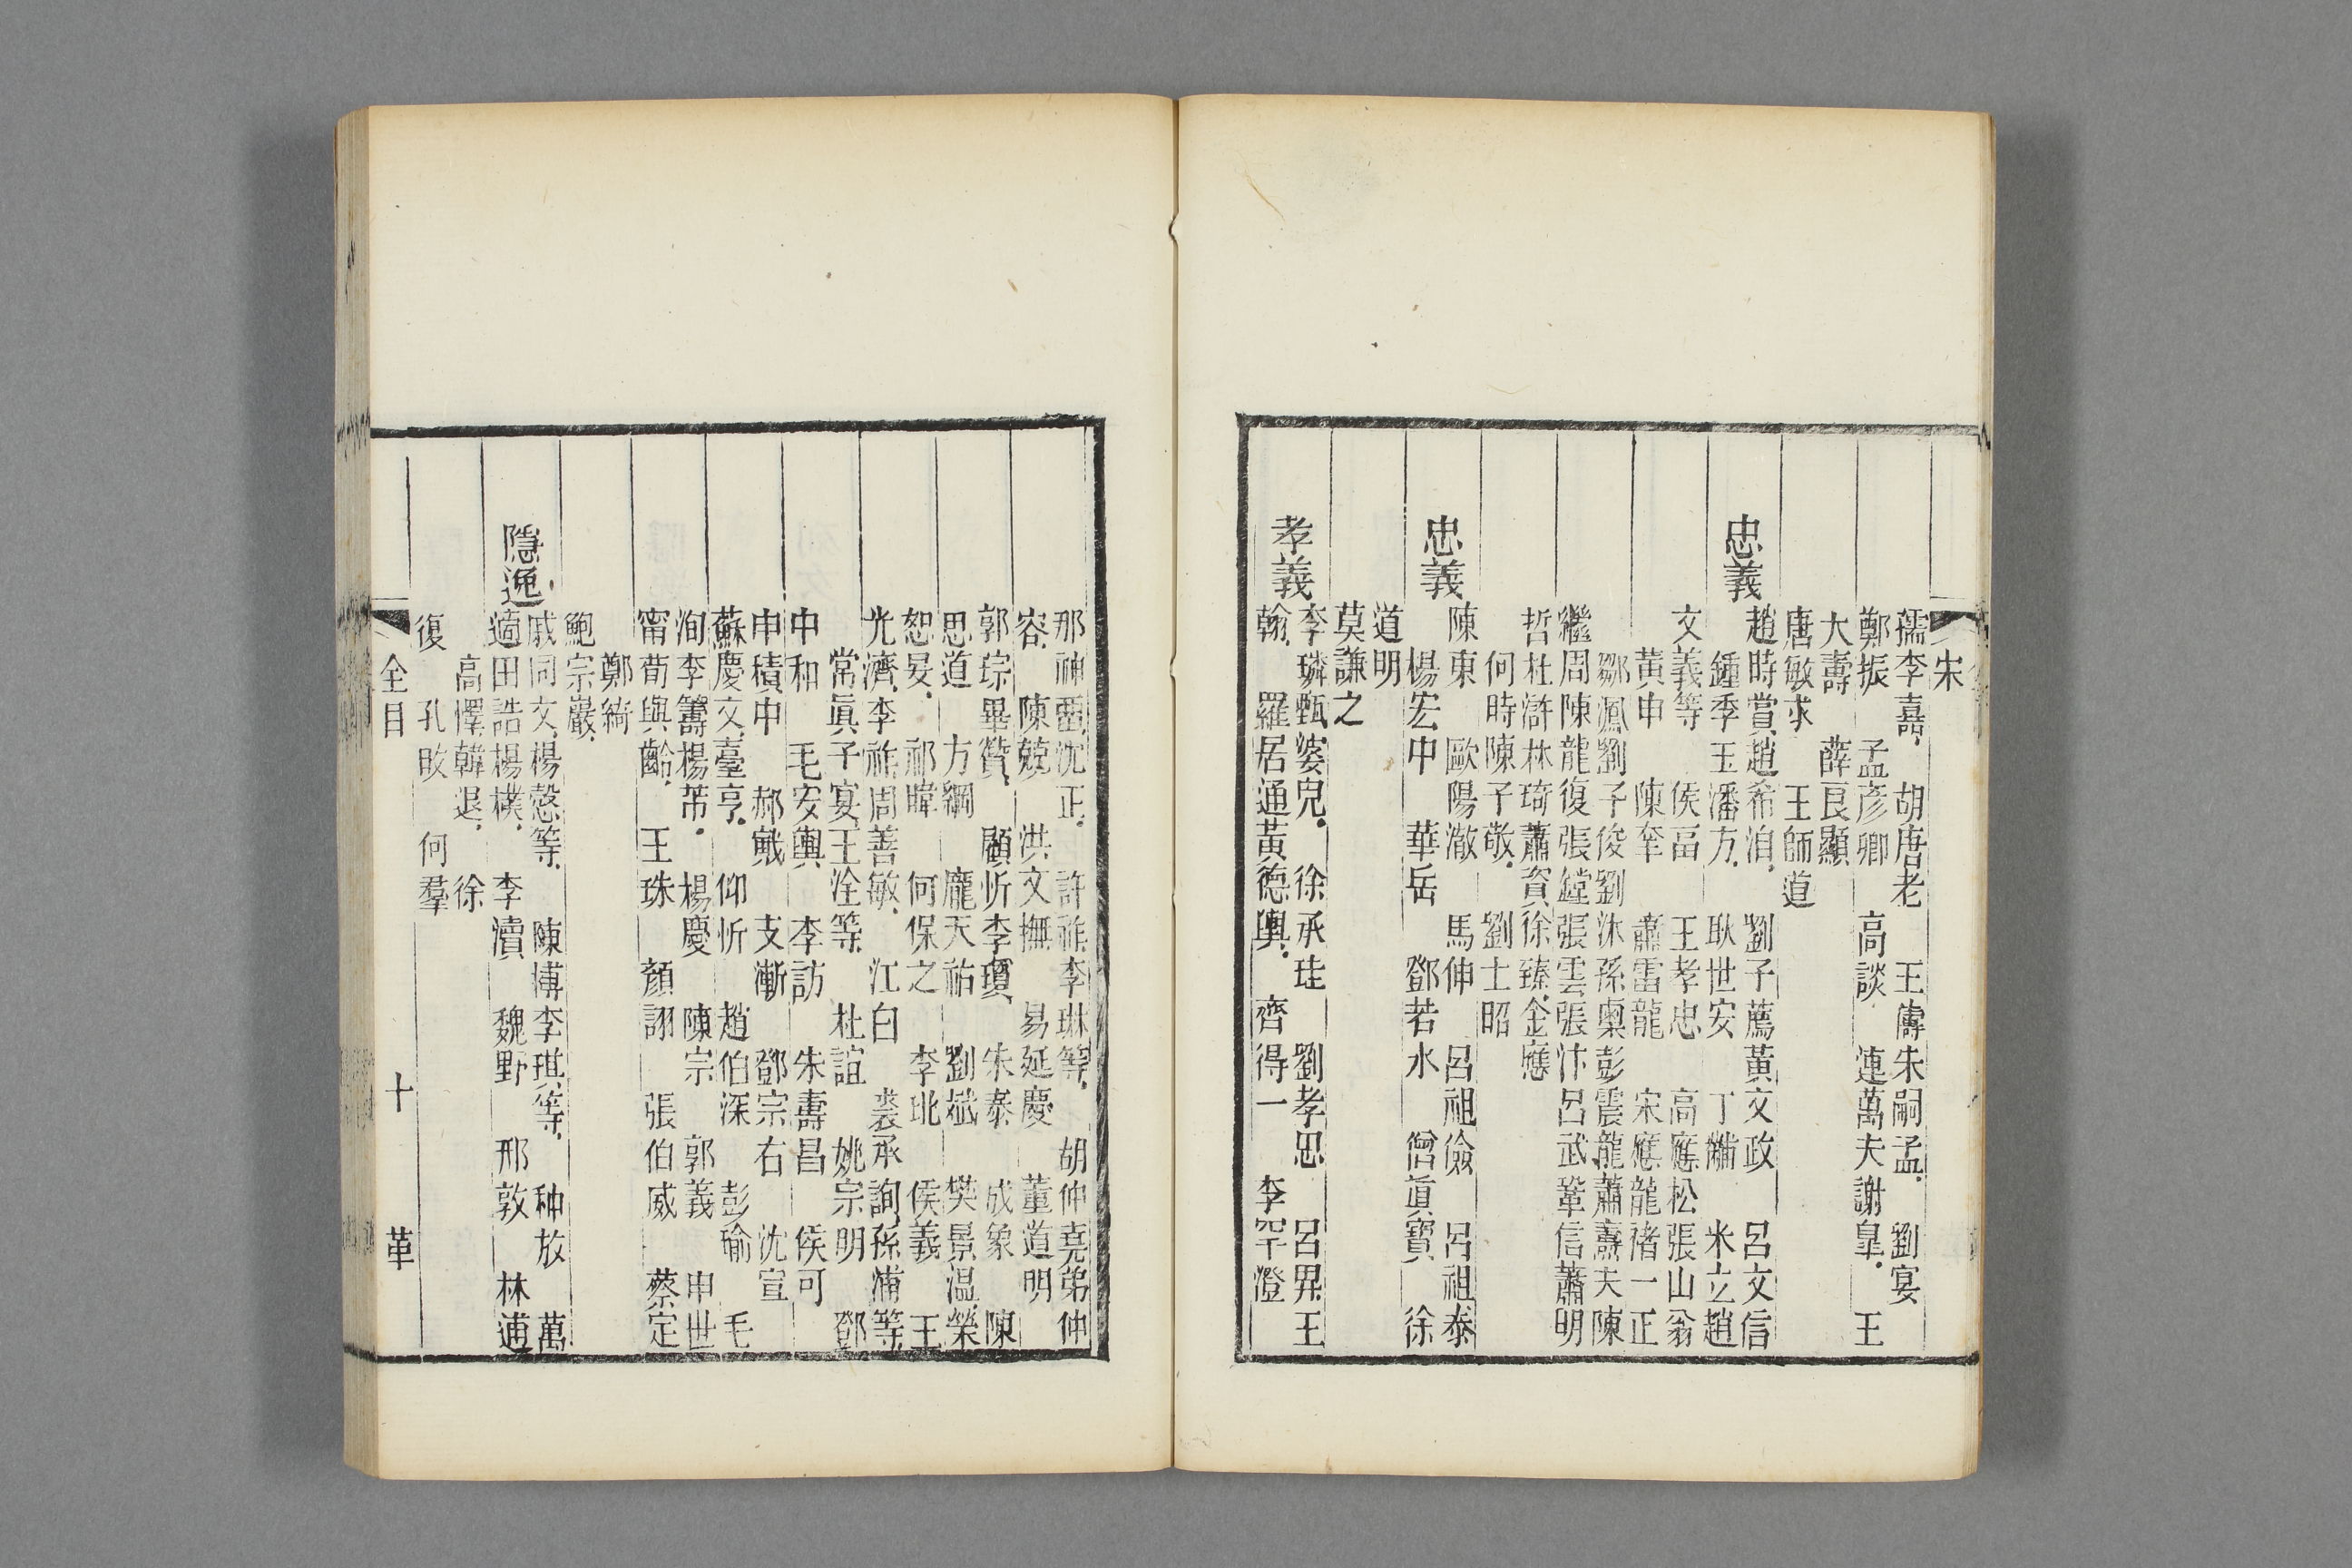 宋
孺李嘉　胡唐老　王儔朱嗣孟　劉宴
鄭振　孟彦卿　高談　連萬夫謝臯　王
大壽　薛良顯
唐敏求　王師道
忠義
趙時賞趙希洎　劉子薦黃文政　呂文信
鍾季玉潘方　耿世安　丁黼　米立趙
文義等　侯畐　王孝忠　高應松張山翁
黃申　陳奎　蕭雷龍　宋應龍褚一正
鄒㵯劉子俊劉沐孫㮚彭震龍蕭燾夫陳
繼周陳龍復張鏜張雲張汴呂武鞏信蕭明
哲杜滸林琦蕭資徐臻金應
何時陳子敬　劉士昭
忠義
陳東　歐陽澈　馬伸　呂祖儉　呂祖泰
楊宏中　華岳　鄧若水　僧眞寶　徐
道明
莫謙之
孝義
李璘甄婆兒　徐承珪　劉孝忠　呂昇王
翰　羅居通黃德輿　齊得一　李罕澄
邢神畱沈正　許祚李琳等　胡仲堯弟仲
容　陳兢　洪文撫　易延慶　董道明
郭琮畢贊　顧忻李瓊　朱泰　成象　陳
思道　方綱　龐天祐　劉斌　樊景温榮
恕旻　祁暐　何保之　李玭　侯義　王
光濟李祚周善敏　江白　裘承詢孫浦等
常眞子宴王洤等　杜誼　姚宗明　鄧
中和　毛安輿　李訪　朱壽昌　侯可
申積中　郝戭　支漸　鄧宗右　沈宣
蘇慶文臺亨　仰忻　趙伯深　彭瑜　毛
洵李籌楊芾　楊慶　陳宗　郭義　申世
甯荀與齡　王珠　顏詡　張伯威　蔡定
鄭綺
鮑宗巖
隱逸
戚同文楊慤等　陳摶李琪等　种放　萬
適田誥楊樸　李瀆　魏野　邢敦　林逋
高懌韓退　徐
復　孔旼　何羣
全目　十　革